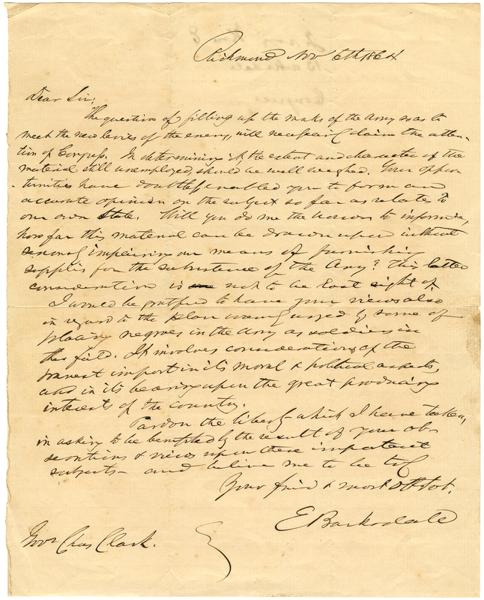 Richmond Nov 6th 1864
Dear Sir;
The question of filling up the ranks of the Army so as to
meet the new levies of the enemy, will necessarily claim the atten-
tion of Congress. In determining it the extent and character of the
material still unemployed, should be well weighed. Your oppor
tunities have doubtless enabled you to form an
accurate opinion on the subject so far as relates to
our own State. Will you do me the favor to inform me,
how far this material can be drawn upon without
seriously impairing our means of furnishing
supplies for the subsistence of the Army? This latter
consideration is not to be lost sight of
I would be gratified to have your views also
in regard to the plan now urged by some of
placing negroes in the Army as soldiers in
the field. It involves considerations of the
gravest import in its moral & political aspects,
and in its bearing upon the great producing
interest of the country.
Pardon the liberty which I have taken,
in asking to be benefited by the result of your ob
servations & views upon these important
subjects and believe me to be
Your friend & most obt Svt.
E Barksdale
Govr Chas Clark.